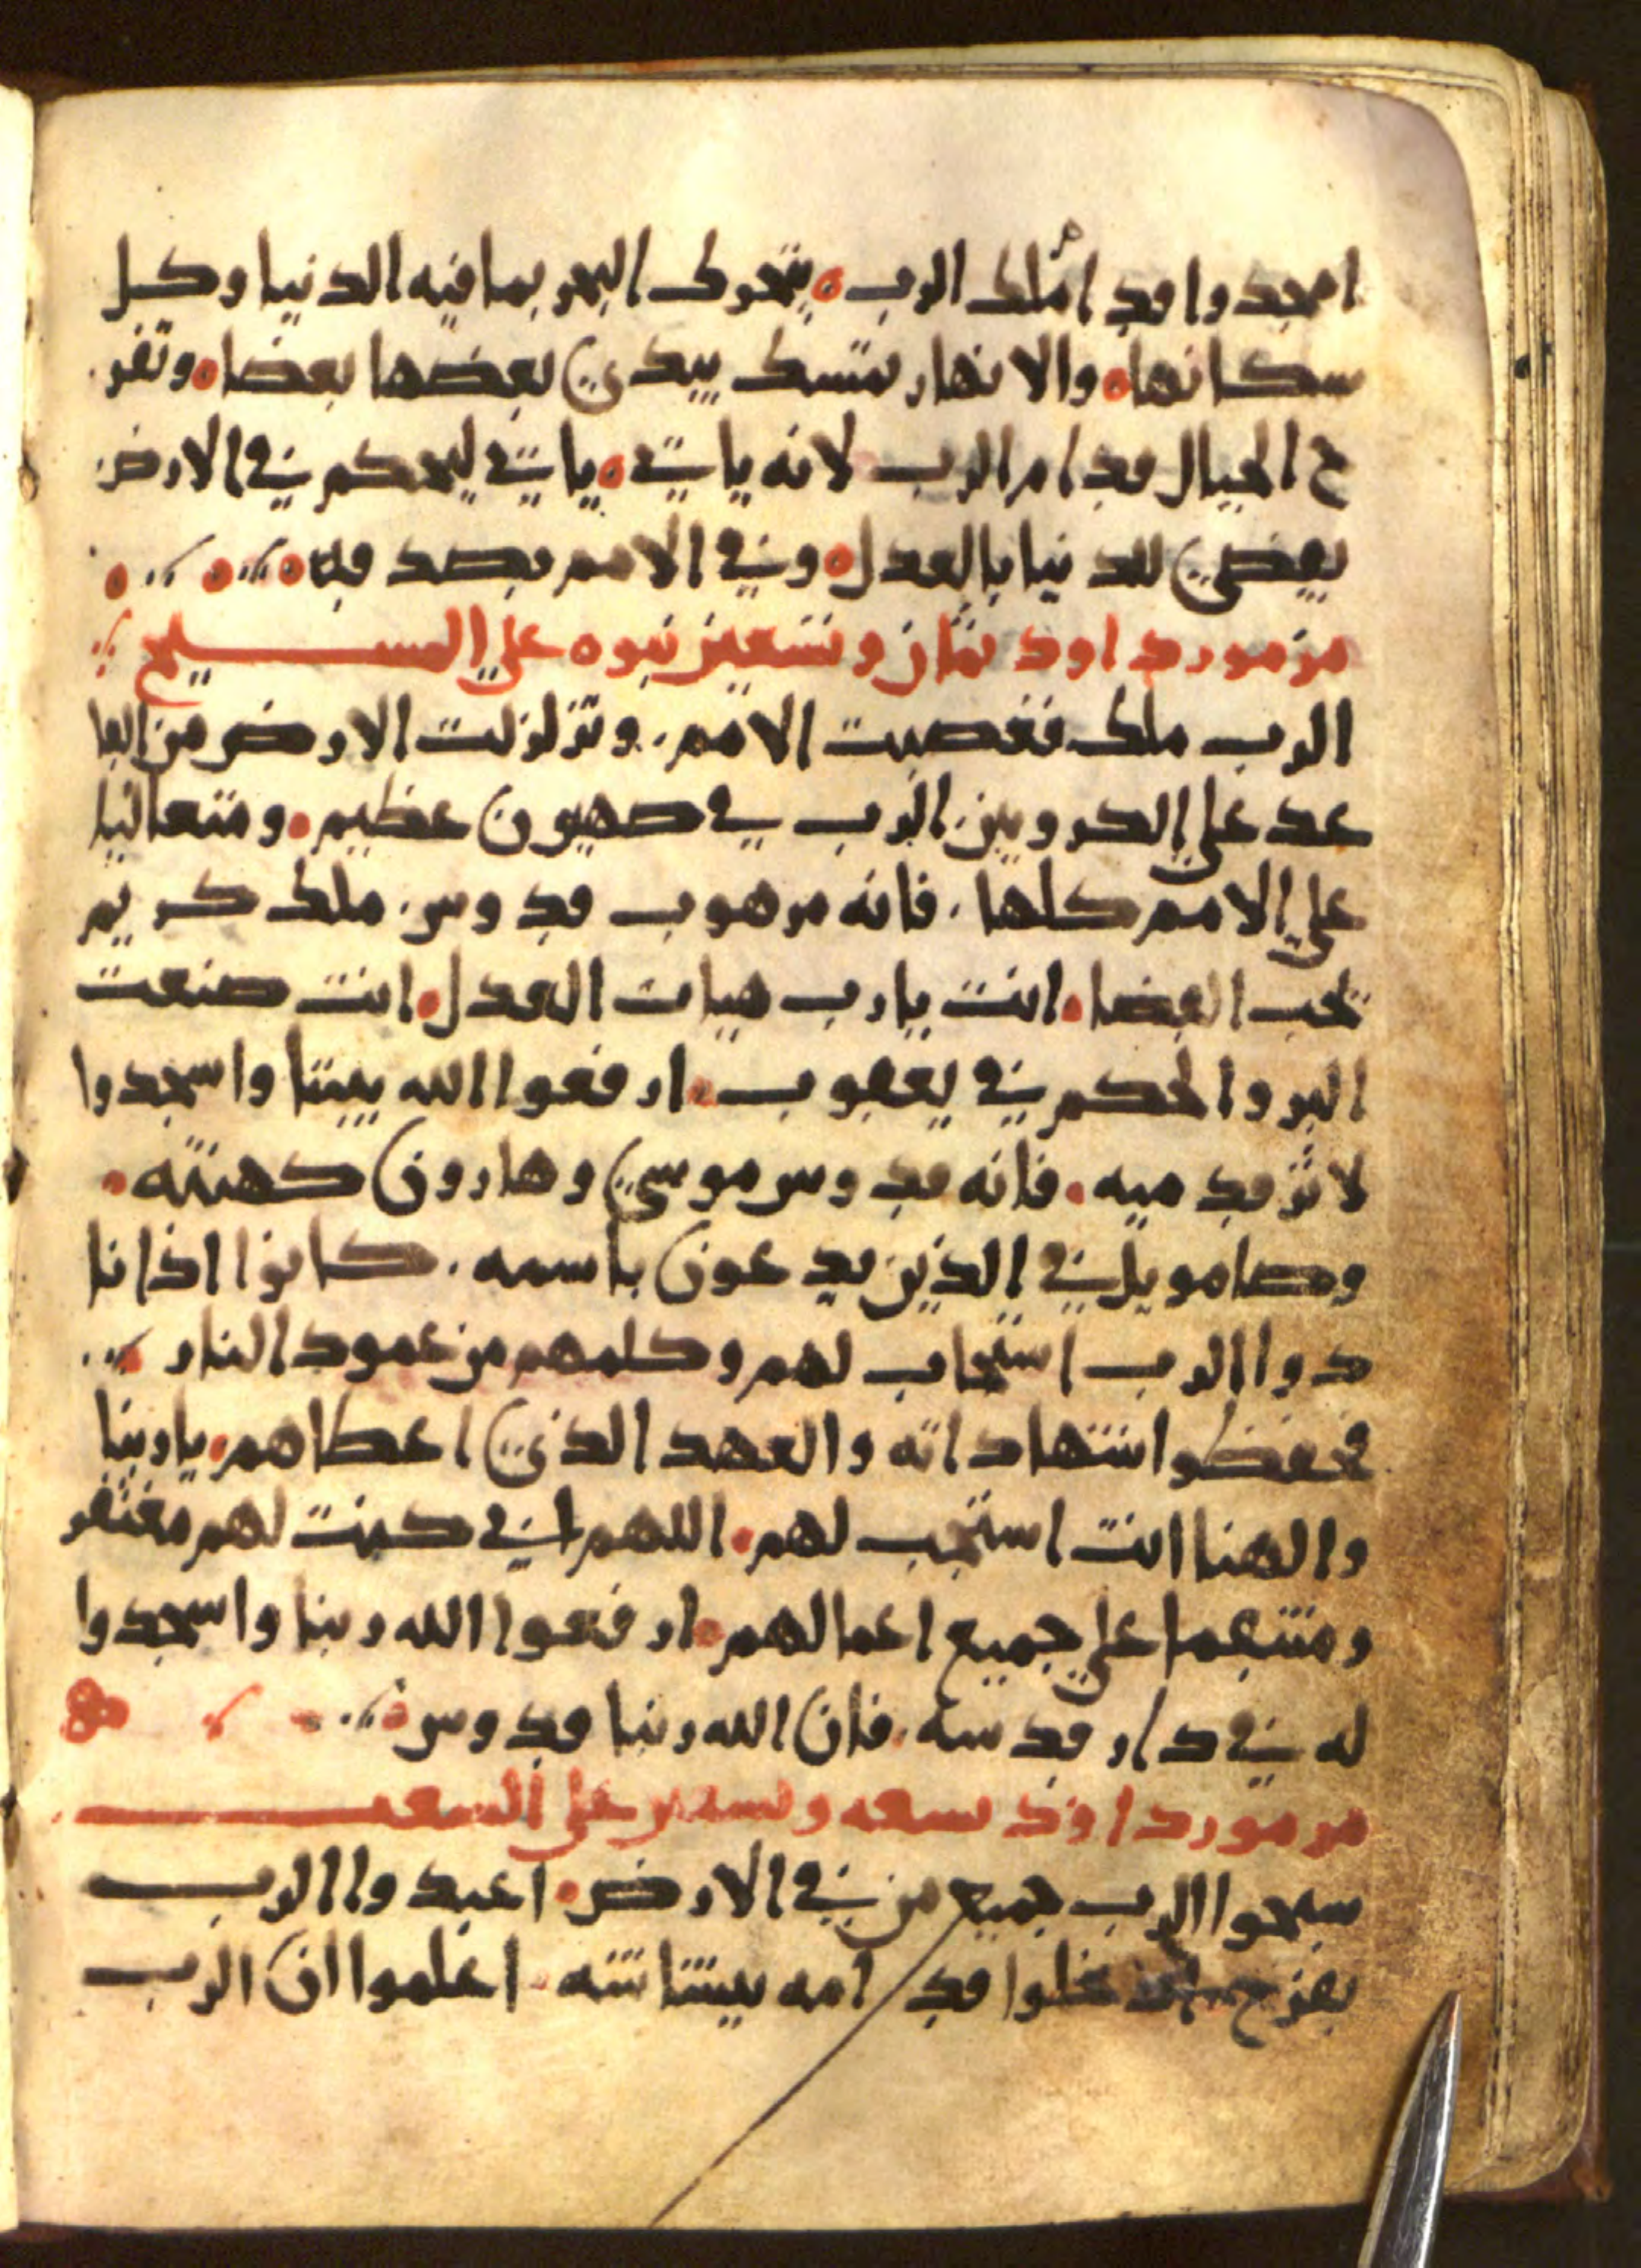 امجدوا قدام ملك الرب يتحرك البحر بما فيه الدنيا وكل
سكانها والانهار تمسك بيدي بعضها بعضا وتفر
ح الجبال قدام الرب لانه ياتي ياتي ليحكم في الارض
يقضي للدنيا بالعدل وفي الامم بصدقه
مزمور داود ثمان وتسعين نبوه علي المسيح
الرب ملك فغصبت الامم وتزلزلت الارض من القا
عد علي الكروبين الرب في صهيون عظيم ومتعاليا
علي الامم كلها فانه مرهوب قدوس ملك كريم
يحب القضا انت يارب هيات العدل انت صنعت
البر والحكم في يعقوب ارفعوا الله بيتنا واسجدوا
لاثر قدميه فانه قدوس موسي وهارون كهنته
وصامويل في الذين يدعون باسمه كانوا اذا نا
دوا الرب استجاب لهم وكلمهم من عمود النار
فحفظوا شهاداته والعهد الذي اعطاهم يا ربنا
والهنا انت استجب لهم اللهم اني كنت لهم مغتفر
ومنتقما علي جميع اعمالهم ارفعوا الله ربنا واسجدوا
له في دار قدسه فان الله ربنا قدوس
مزمور داود تسعه وتسعين علي
سبحوا الرب جميع من في الارض اعبدوا الرب
بفرح ادخلوا قدامه ببشاشه اعلموا ان الرب